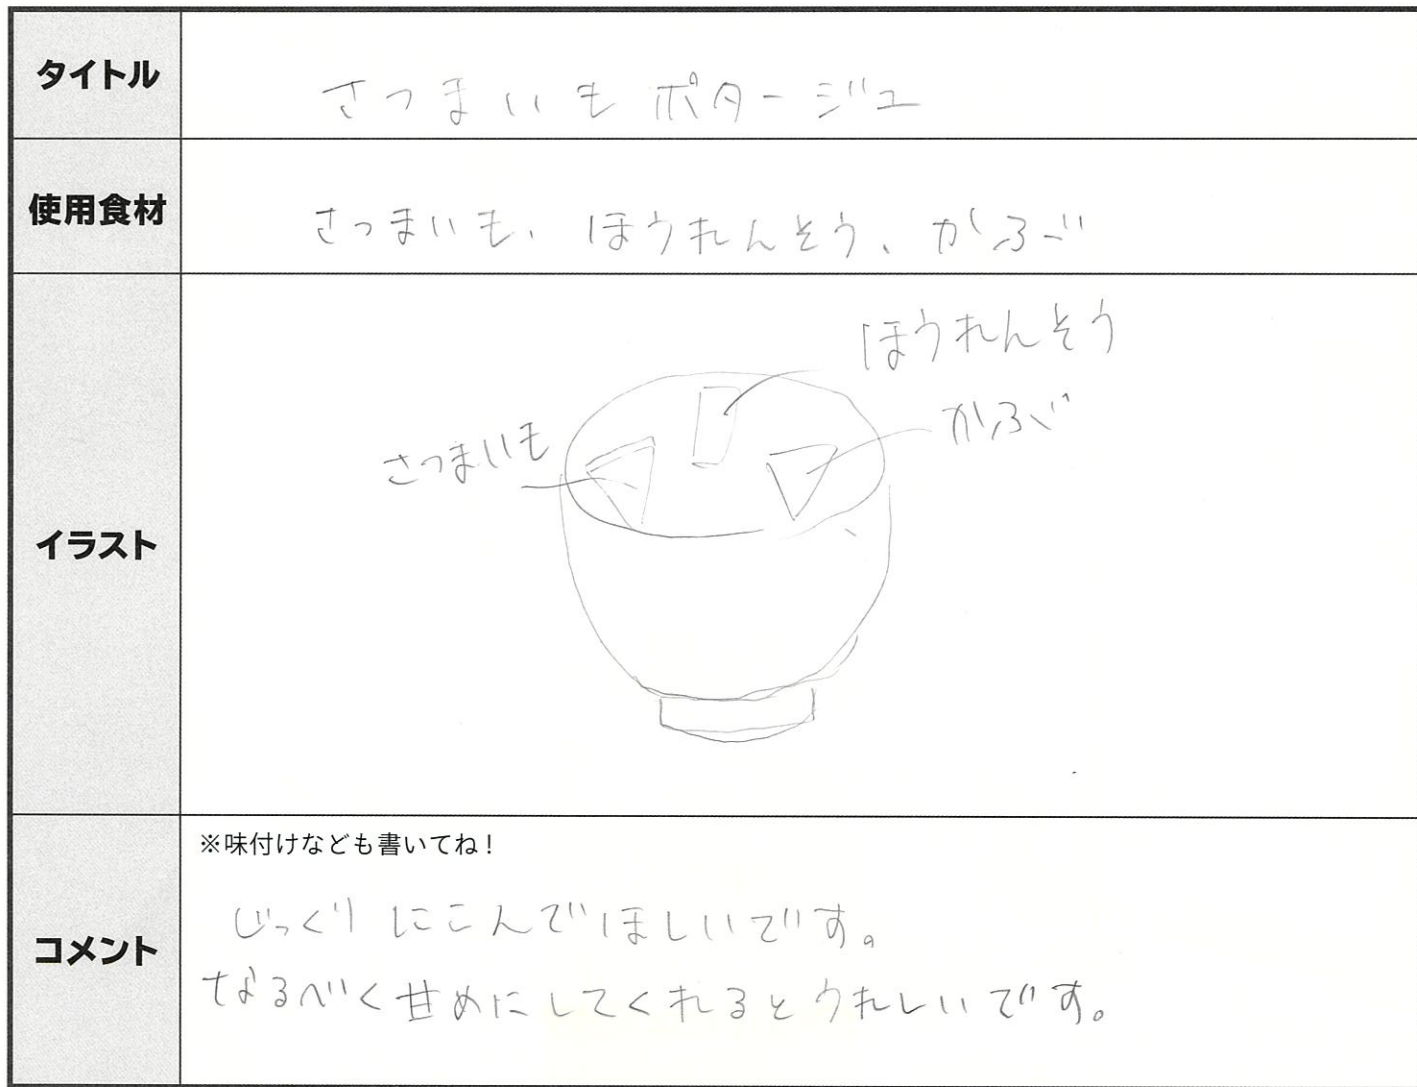 タイトル
さつまいもポタージュ
使用食材
さつまいも、ほうれんそう、かぶ
イラスト
ほうれんそう
かぶ
さつまいも
コメント
※味付けなども書いてね!
じっくりにこんでほしいです。
なるべく甘めにしてくれるとうれしいです。